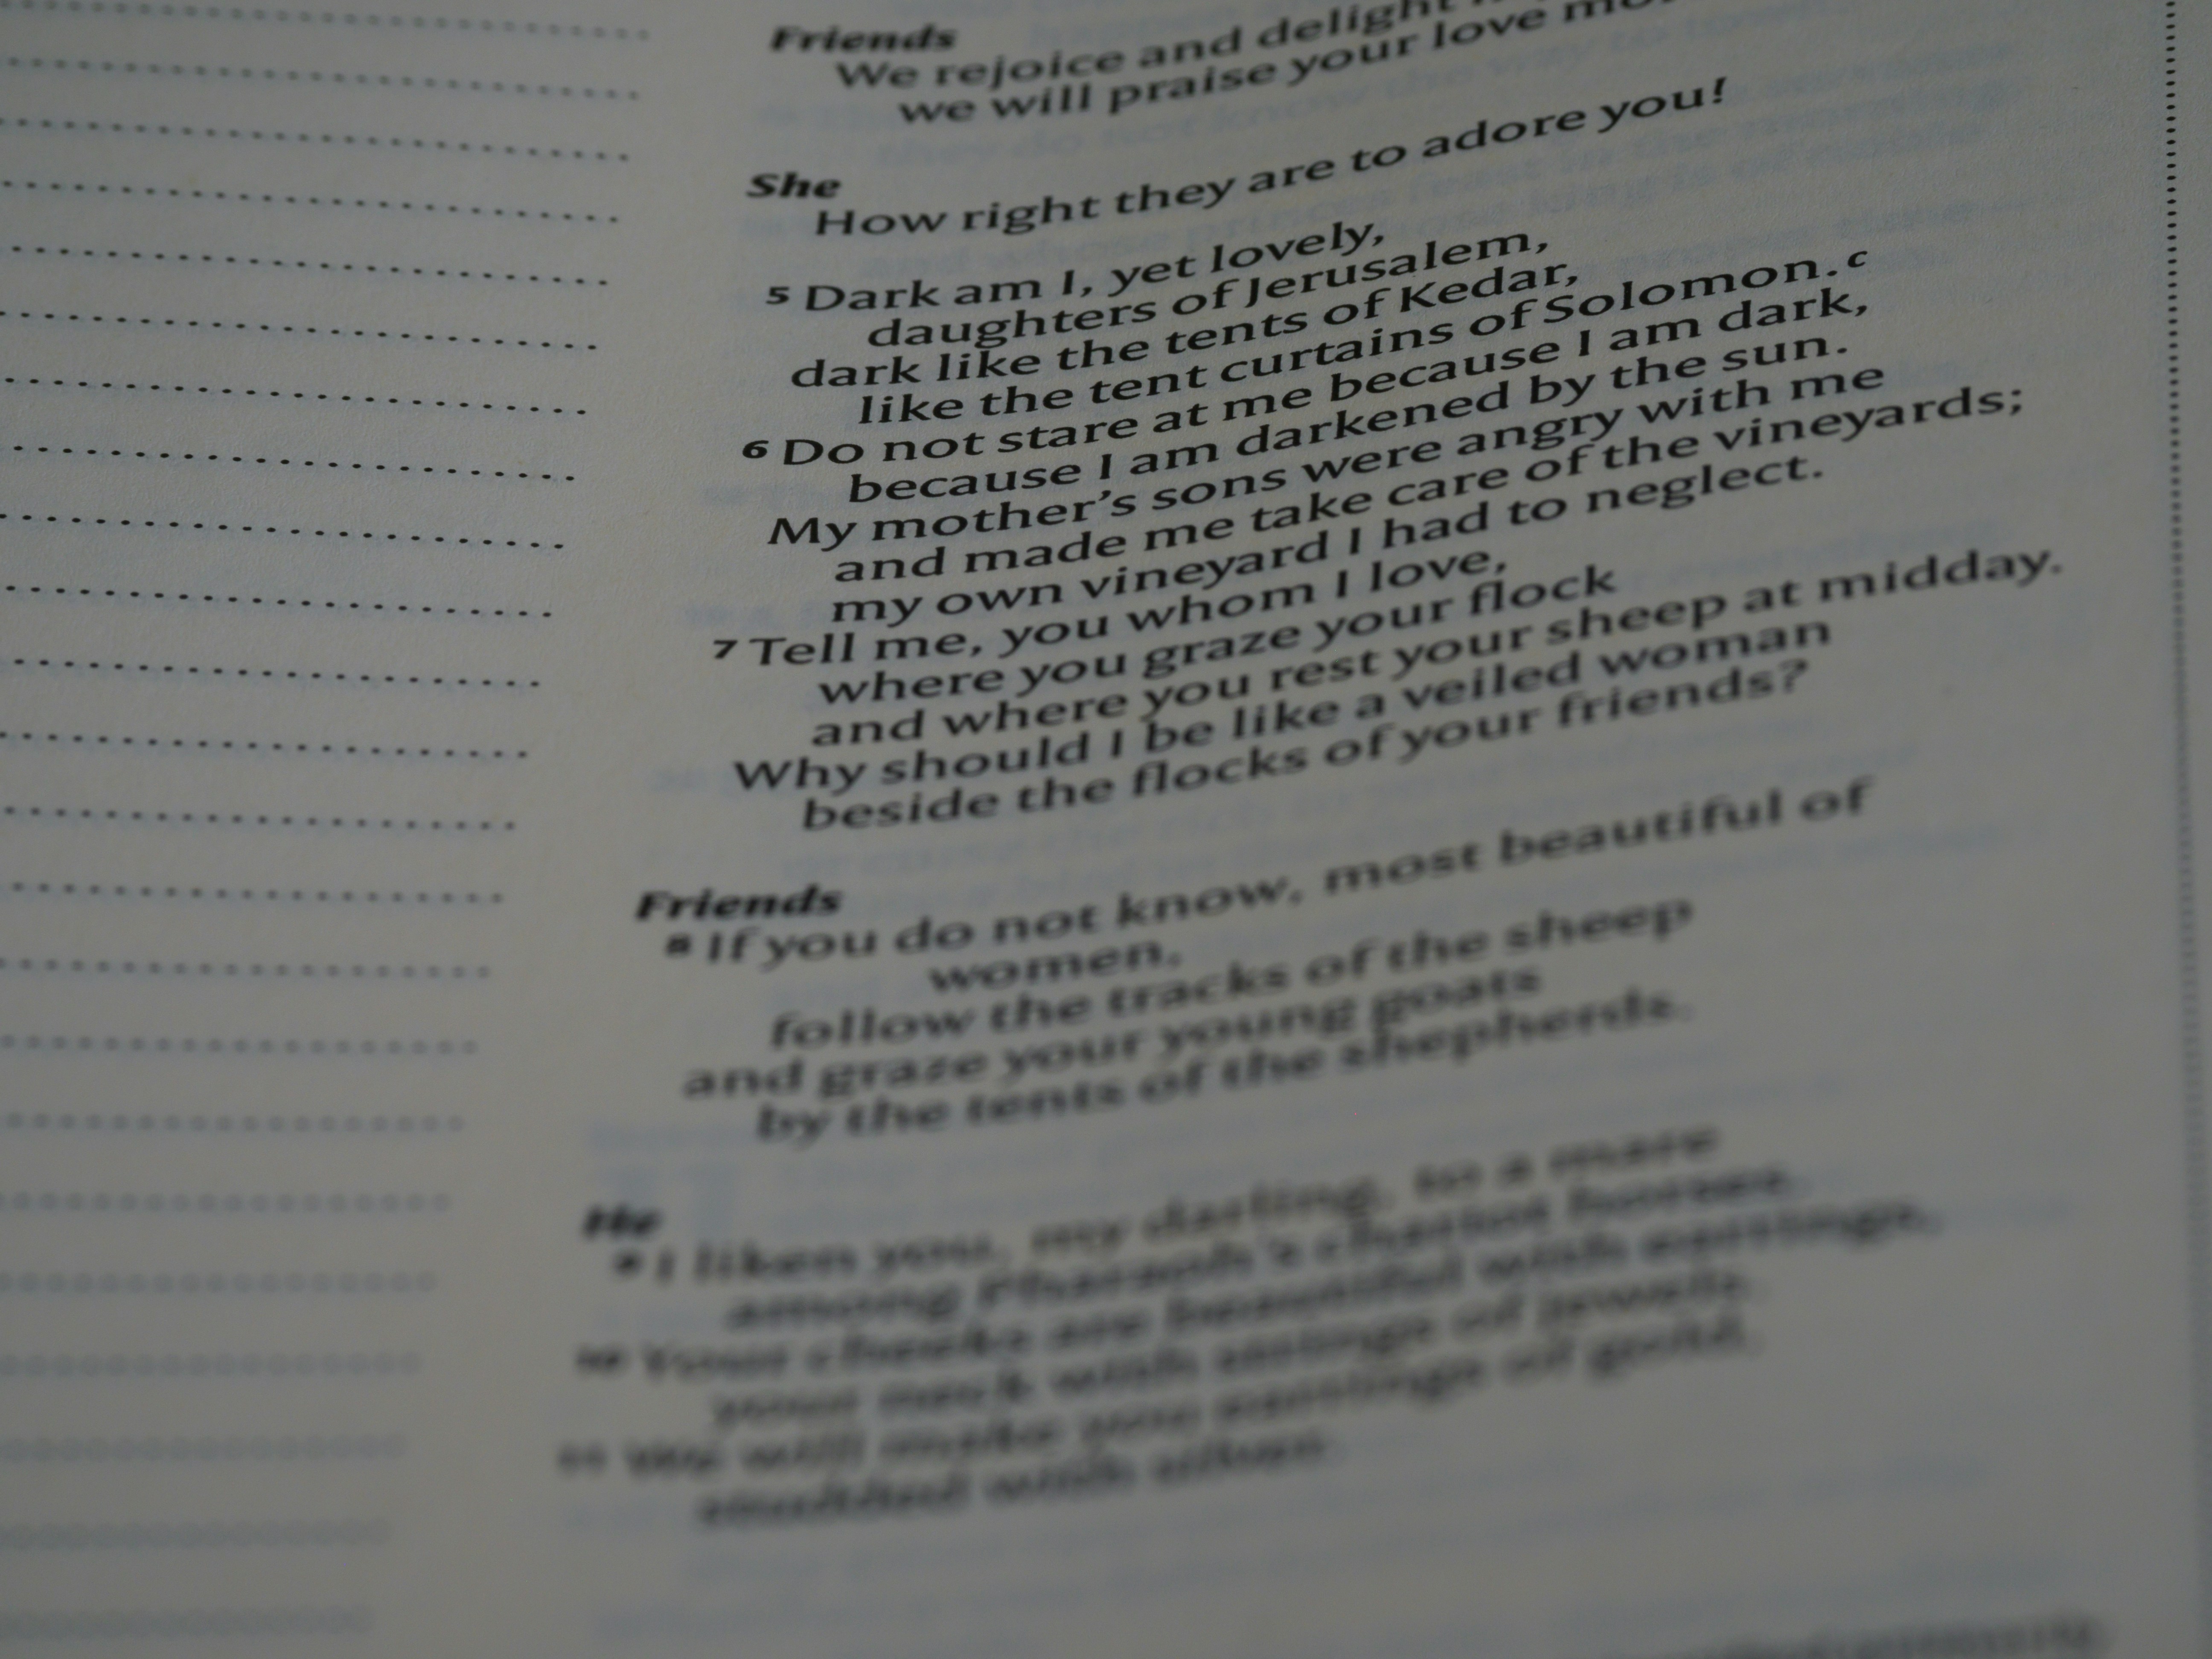 Friends
We rejoice and delight
we will praise your love
She
How right they are to adore you!
5 Dark am I, yet lovely,
daughters of Jerusalem,
dark like the tents of Kedar,
like the tent curtains of Solomon.c
6 Do not stare at me because I am dark,
because I am darkened by the sun.
My mother’s sons were angry with me
and made me take care of the vineyards;
my own vineyard I had to neglect.
7 Tell me, you whom I love,
where you graze your flock
and where you rest your sheep at midday.
Why should I be like a veiled woman
beside the flocks of your friends?
Friends
8 If you do not know, most beautiful of
women,
follow the tracks of the sheep
and graze your young goats
by the tents of the shepherds.
He
9 I liken you, my darling, to a mare
among Pharaoh’s chariot horses.
10 Your cheeks are beautiful with earrings,
your neck with strings of jewels.
11 We will make you earrings of gold,
studded with silver.